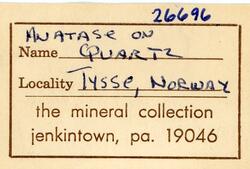 26696
ANATASE ON
Name QUARTZ
Locality TYSSE, NORWAY
the mineral collection
jenkintown, pa. 19046